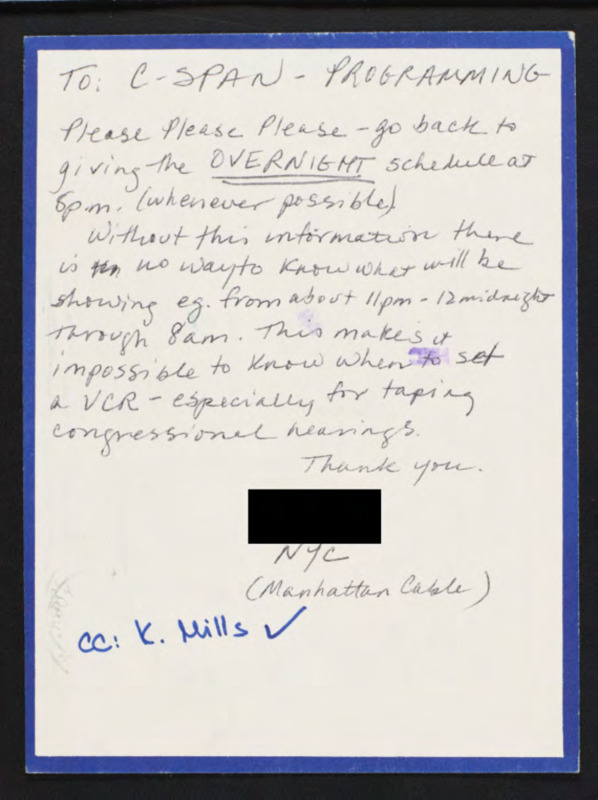 TO: C-SPAN - PROGRAMMING
Please Please Please - go back to
giving the OVERNIGHT schedule at
6pm. (whenever possible)
Without this information there
is no way to know what will be
showing eg. from about 11pm - 12 midnight
through 8am. This makes it
impossible to know when to set
a VCR - especially for taping
congressional hearings.
Thank you.
NYC
(Manhattan Cable)
cc: K. Mills ✓